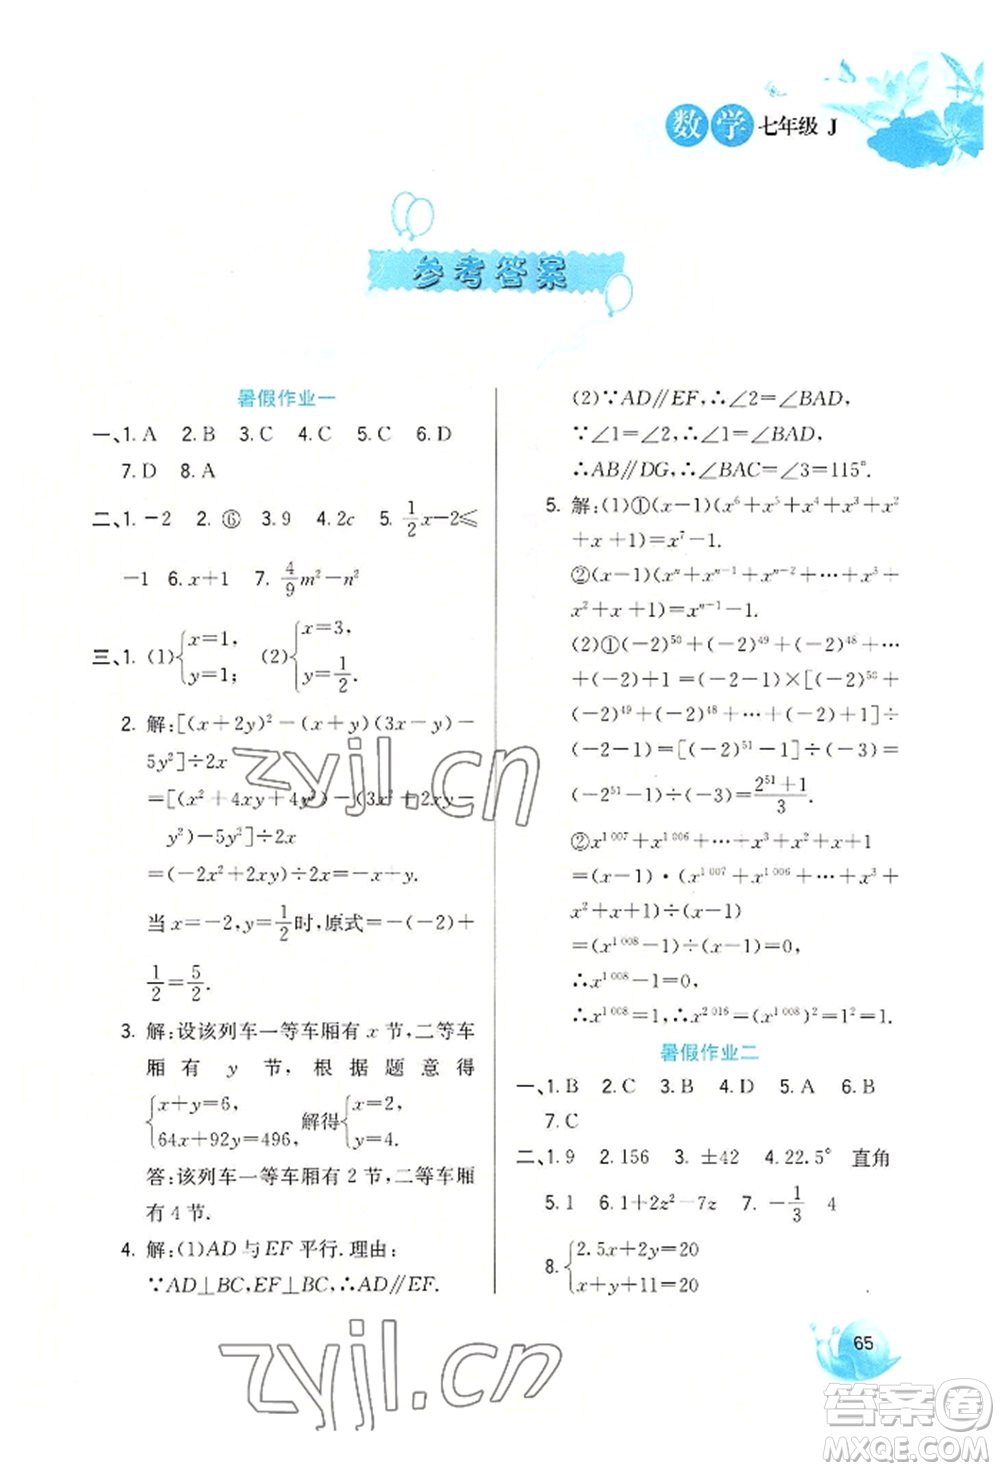 数学 七年级 J
参考答案
暑假作业一
一、1. A 2. B 3. C 4. C 5. C 6. D
7. D 8. A
二、1. -2 2. ⑥ 3. 9 4. 2c 5. 1/2x-2≤
-1 6. x+1 7. 4/9m²-n²
三、1. (1){x=1, y=1; (2){x=3, y=1/2.
2. 解:[(x+2y)²-(x+y)(3x-y)-
5y²]÷2x
=[(x²+4xy+4y²)-(3x²+2xy-
y²)-5y²]÷2x
=(-2x²+2xy)÷2x=-x+y.
当x=-2,y=1/2时,原式=-(-2)+
1/2=5/2.
3. 解:设该列车一等车厢有 x 节,二等车
厢有 y 节,根据题意得
{x+y=6, 64x+92y=496, 解得{x=2, y=4.
答:该列车一等车厢有 2 节,二等车厢
有 4 节.
4. 解:(1)AD 与 EF 平行.理由:
∵AD⊥BC,EF⊥BC,∴AD∥EF.
(2)∵AD∥EF,∴∠2=∠BAD,
∵∠1=∠2,∴∠1=∠BAD,
∴AB∥DG,∴∠BAC=∠3=115°.
5. 解:(1)①(x-1)(x⁶+x⁵+x⁴+x³+x²
+x+1)=x⁷-1.
②(x-1)(xⁿ+xⁿ⁻¹+xⁿ⁻²+…+x³
+x²+x+1)=xⁿ⁻¹-1.
(2)①(-2)⁵⁰+(-2)⁴⁹+(-2)⁴⁸+…
+(-2)+1=(-2-1)×[(-2)⁵⁰+
(-2)⁴⁹+(-2)⁴⁸+…+(-2)+1]÷
(-2-1)=[(-2)⁵¹-1]÷(-3)=
(-2⁵¹-1)÷(-3)=(2⁵¹+1)/3.
②x¹⁰⁰⁷+x¹⁰⁰⁶+…+x³+x²+x+1
=(x-1)·(x¹⁰⁰⁷+x¹⁰⁰⁶+…+x³+
x²+x+1)÷(x-1)
=(x¹⁰⁰⁸-1)÷(x-1)=0,
∴x¹⁰⁰⁸-1=0,
∴x¹⁰⁰⁸=1,∴x²⁰¹⁶=(x¹⁰⁰⁸)²=1.
暑假作业二
一、1. B 2. C 3. B 4. D 5. A 6. B
7. C
二、1. 9 2. 156 3. ±42 4. 22.5° 直角
5. 1 6. 1+2z²-7z 7. -1/3 4
8. {2.5x+2y=20 x+y+11=20
65
zyjl.cn
zyjl.cn
答案卷
MXQE.COM